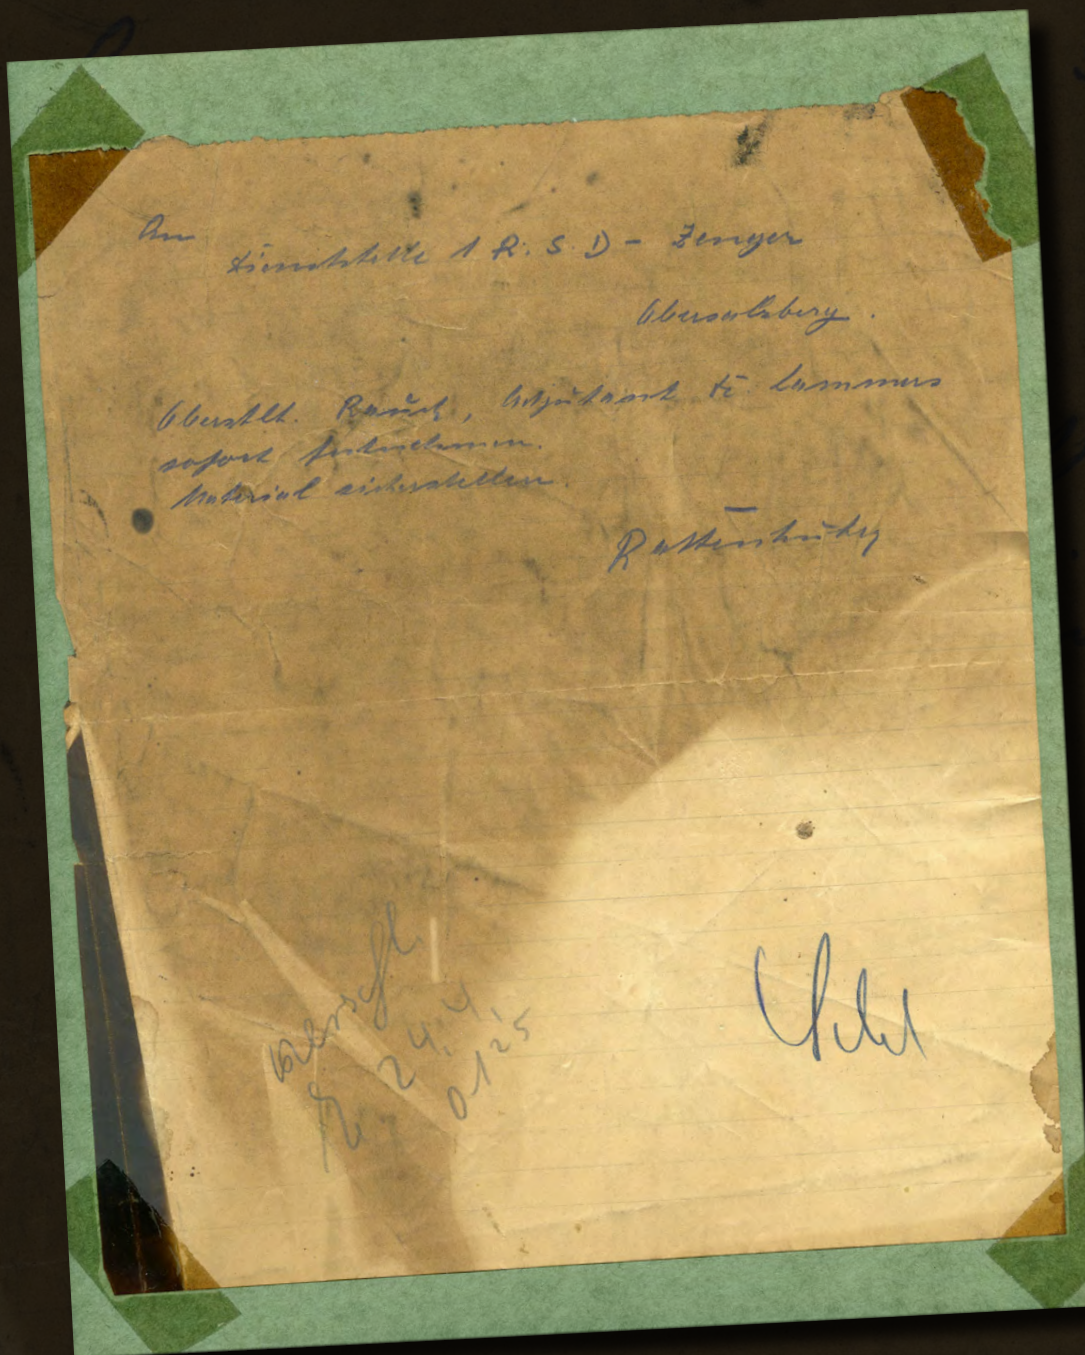 An
Dienststelle 1 R.S.D - Zenger
Obersalzberg.
Oberstlt. Rauch, Adjutant Dr. Lammers
sofort festnehmen.
Material sicherstellen.
Rattenhuber
24.4.
0125